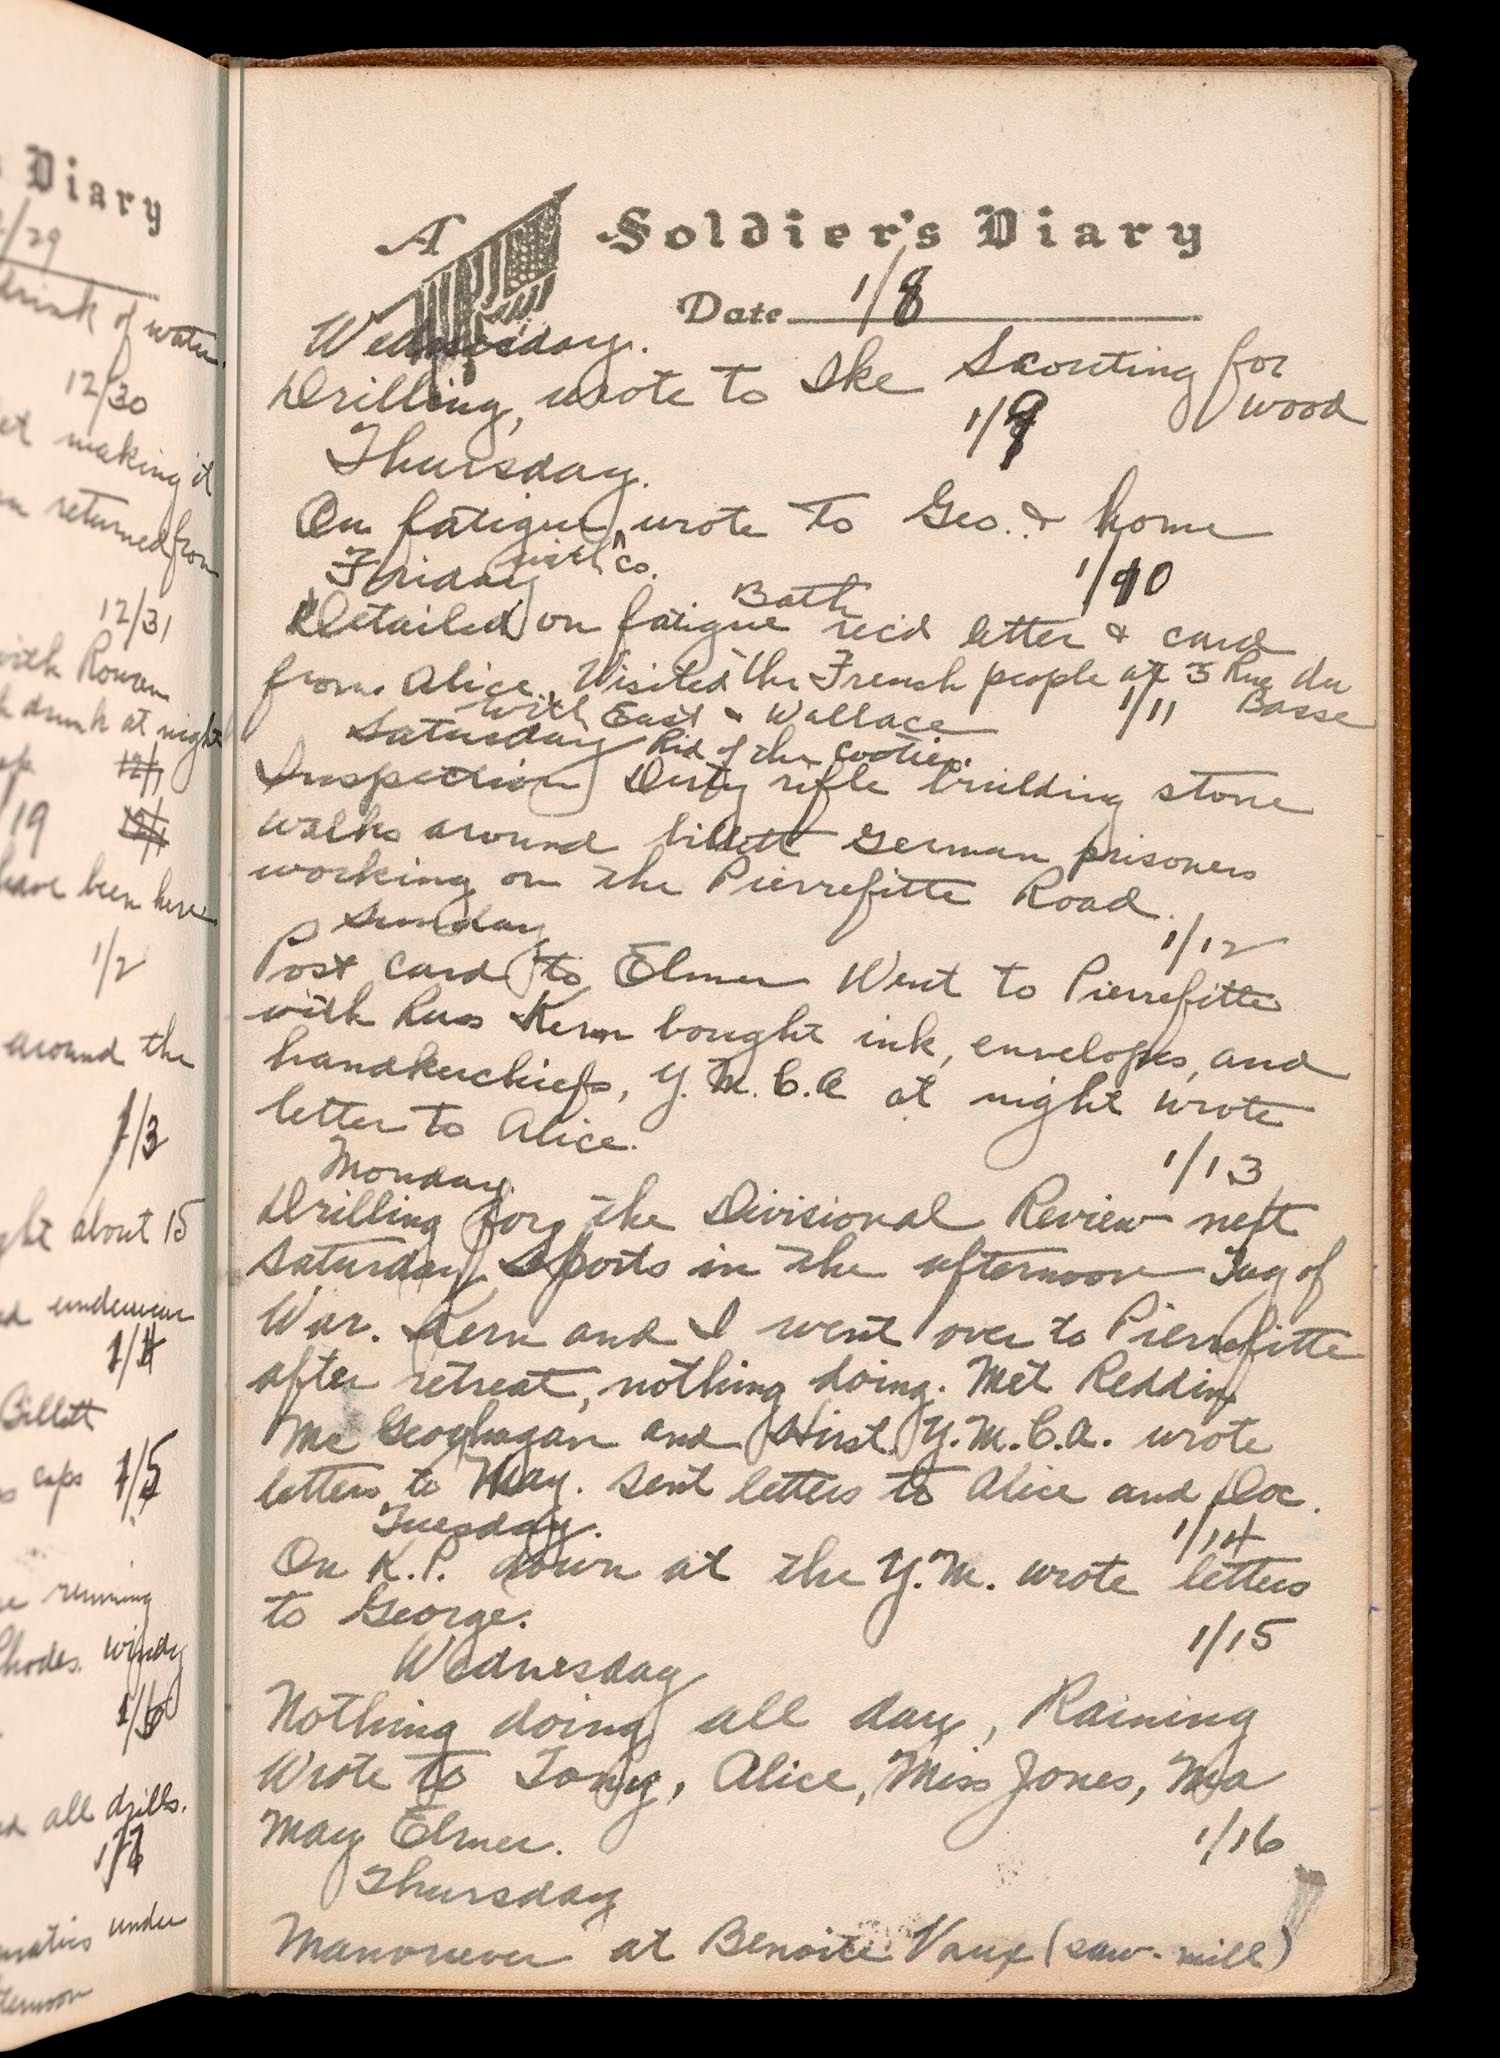 s Diary
12/29
drink of water.
12/30
making it
returned from
12/31
with Rowan
drunk at night
12/1
/19
12/1
have been here
1/2
around the
1/3
ght about 15
underwear
1/4
Billett
caps 1/5
running
Rhodes. windy
1/6
all drills.
1/7
under
A Soldier's Diary
Date 1/8
Wednesday.
Drilling, wrote to Ike Scouting for
wood
1/9
Thursday.
On fatigue, wrote to Geo. & home
with Co.
Friday 1/10
Bath
Detailed on fatigue rec'd letter & card
from Alice. Visited the French people at 3 Rue du
Basse
with East & Wallace 1/11
Saturday Rid of the cooties.
Inspection Dirty rifle building stone
walks around billett German prisoners
working on the Pierrefitte Road.
Sunday 1/12
Post card to Elmer Went to Pierrefitte
with Russ Kern bought ink, envelopes, and
handkerchiefs, Y.M.C.A at night wrote
letter to Alice.
Monday 1/13
Drilling for the Divisional Review next
Saturday Sports in the afternoon Tug of
War. Kern and I went over to Pierrefitte
after retreat, nothing doing. Met Reddin
Mc Geoghagan and Hirst. Y.M.C.A. wrote
letters to May. Sent letters to Alice and Doc.
Tuesday. 1/14
On K.P. down at the Y.M. wrote letters
to George.
1/15
Wednesday
Nothing doing all day, Raining
Wrote to Tony, Alice, Miss Jones, Ma
May Elmer. 1/16
Thursday
Manouever at Benoite Vaux (saw-mill)